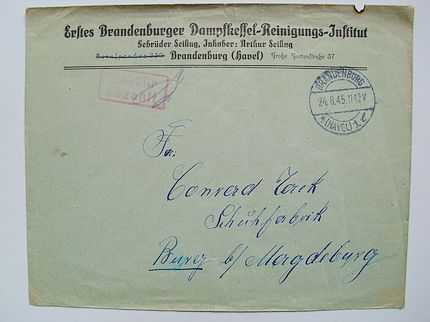 Erstes Brandenburger Dampfkessel-Reinigungs-Institut
Gebrüder Seiling, Inhaber: Arthur Seiling
Brandenburg (Havel) Große Gartenstraße 37
bezahlt
BRANDENBURG
24.8.45.11-12V
(HAVEL) 1 e
Fa.
Conrad Tack
Schuhfabrik
Burg b/ Magdeburg